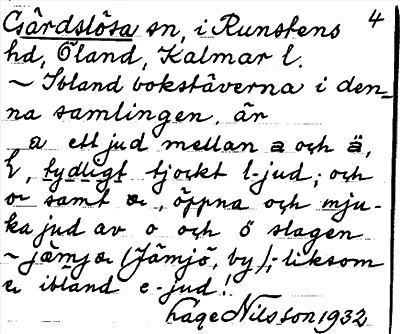 Gärdslösa sn, i Runstens 4
hd, Öland, Kalmar l.
~ Ibland bokstäverna i den-
na samlingen, är
a ett jud mellan a och ä,
l, tydligt tjockt l-jud; och
o samt e, öppna och mju-
ka jud av o och ö slagen
~ jämje (Jämjö, by); liksom
e ibland e-jud!
Lage Nilsson 1932